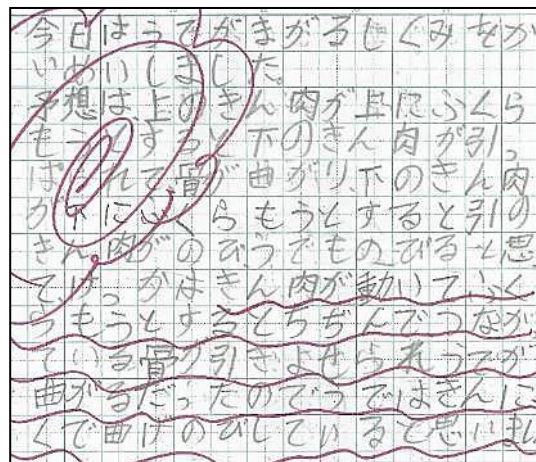 今日はうでがまがるしくみをか
いめいしました。
予想は、上のきん肉が上にふくら
もうとすると下のきん肉が引っ
ぱられて骨が曲がり、下のきん肉
が下にふくらもうとすると引の
きん肉がのびうでものびると思
てけっかはきん肉が動いてふく
らもうとするとちぢんでつなが
ている骨が引きよせられうでが
曲がるだったのでうではきんに
くで曲げのびしていると思いまし